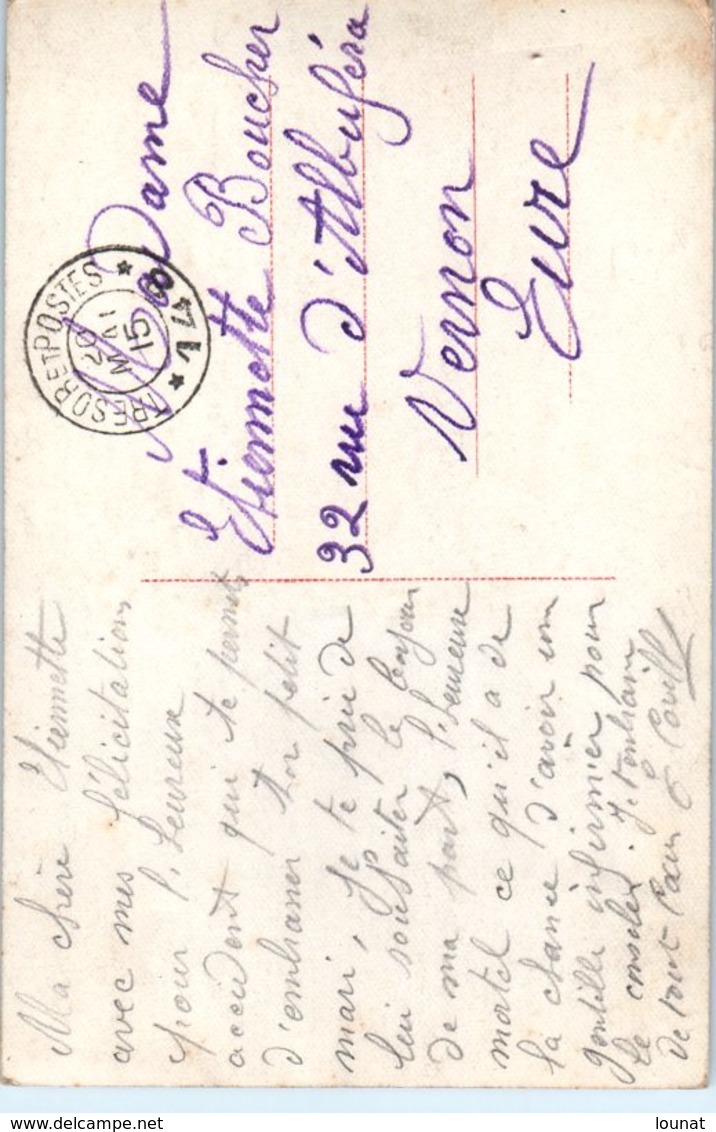 Ma chère Etiennette
avec mes félicitations
pour l'heureux
accident qui te permet
d'embrasser ton petit
mari, Je te prie de
lui souhaiter le bonjour
de ma part, l'heureux
mortel ce qu'il a de
la chance d'avoir une
gentille infirmier pour
le consoler. Je t'embrasse
de tout
Madame
Etiennette Boucher
32 rue d'Albuféra
Vernon
Eure
TRESOR ET POSTES
20
MAI
15
* 74 *
lounat